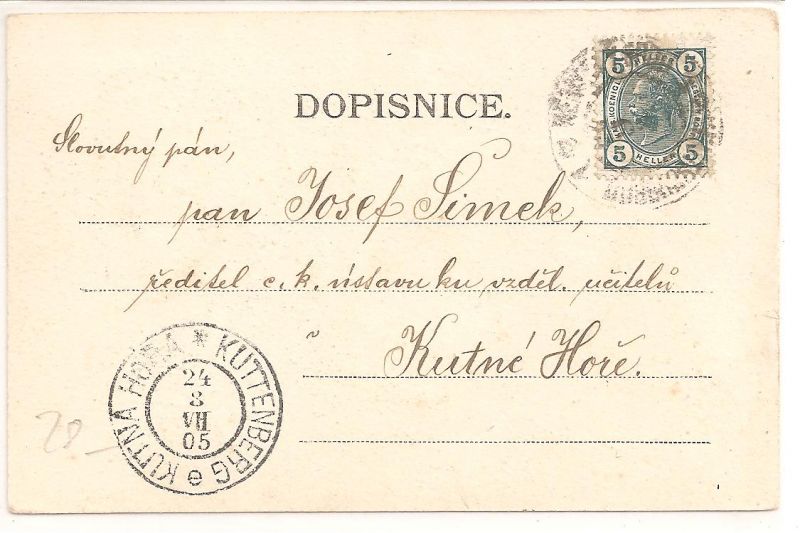 DOPISNICE.
5 HELLER 5
5 HELLER 5
Slovutný pán,
pan Josef Šimek,
ředitel c. k. ússavu ku vzděl. učitelů
v
Kutné Hoře.
KUTNA HORA * KUTTENBERG e
24
3
VII
05
20